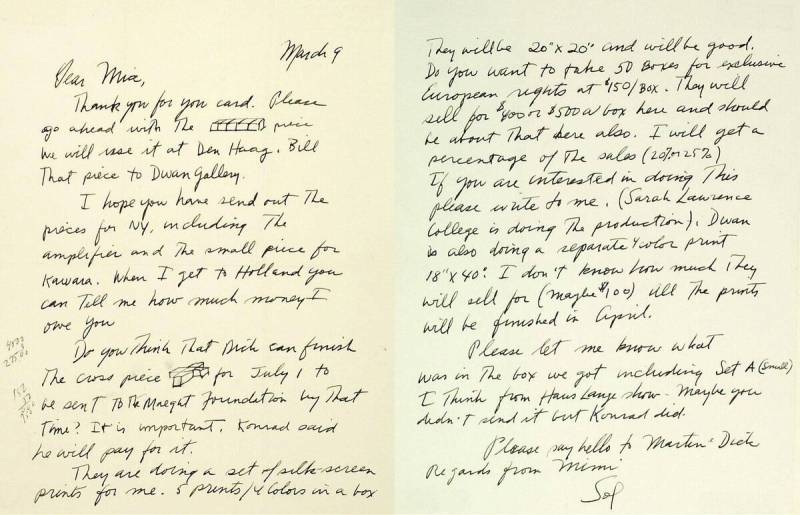 March 9
Dear Mia,
Thank you for you card. Please
go ahead with the piece
We will use it at Den Haag. Bill
That piece to Dwan Gallery.
I hope you have send out The
pieces for NY, including The
amplifier and The small piece for
Kawara. When I get to Holland you
can Tell me how much money I
owe you
Do you Think That Dick can finish
The cross piece for July 1 to
be sent to the Maeght Foundation by That
Time? It is important. Konrad said
he will pay for it.
They are doing a set of silk-screen
prints for me. 5 prints/4 colors in a box
They will be 20" x 20" and will be good.
Do you want to take 50 Boxes for exclusive
European rights at $150/Box. They will
sell for $400 or $500 a box here and should
be about That there also. I will get a
percentage of The sales (20% or 25%)
If you are interested in doing This
please write to me. (Sarah Lawrence
College is doing The production). Dwan
is also doing a separate 4 color print
18" x 40". I don't know how much They
will sell for (maybe $100). All The prints
will be finished in April.
Please let me know what
was in The box we got including Set A (small)
I Think from Haus Lange show. Maybe you
didn't send it but Konrad did.
Please say hello to Martin & Dick
Regards from Mimi
Sol